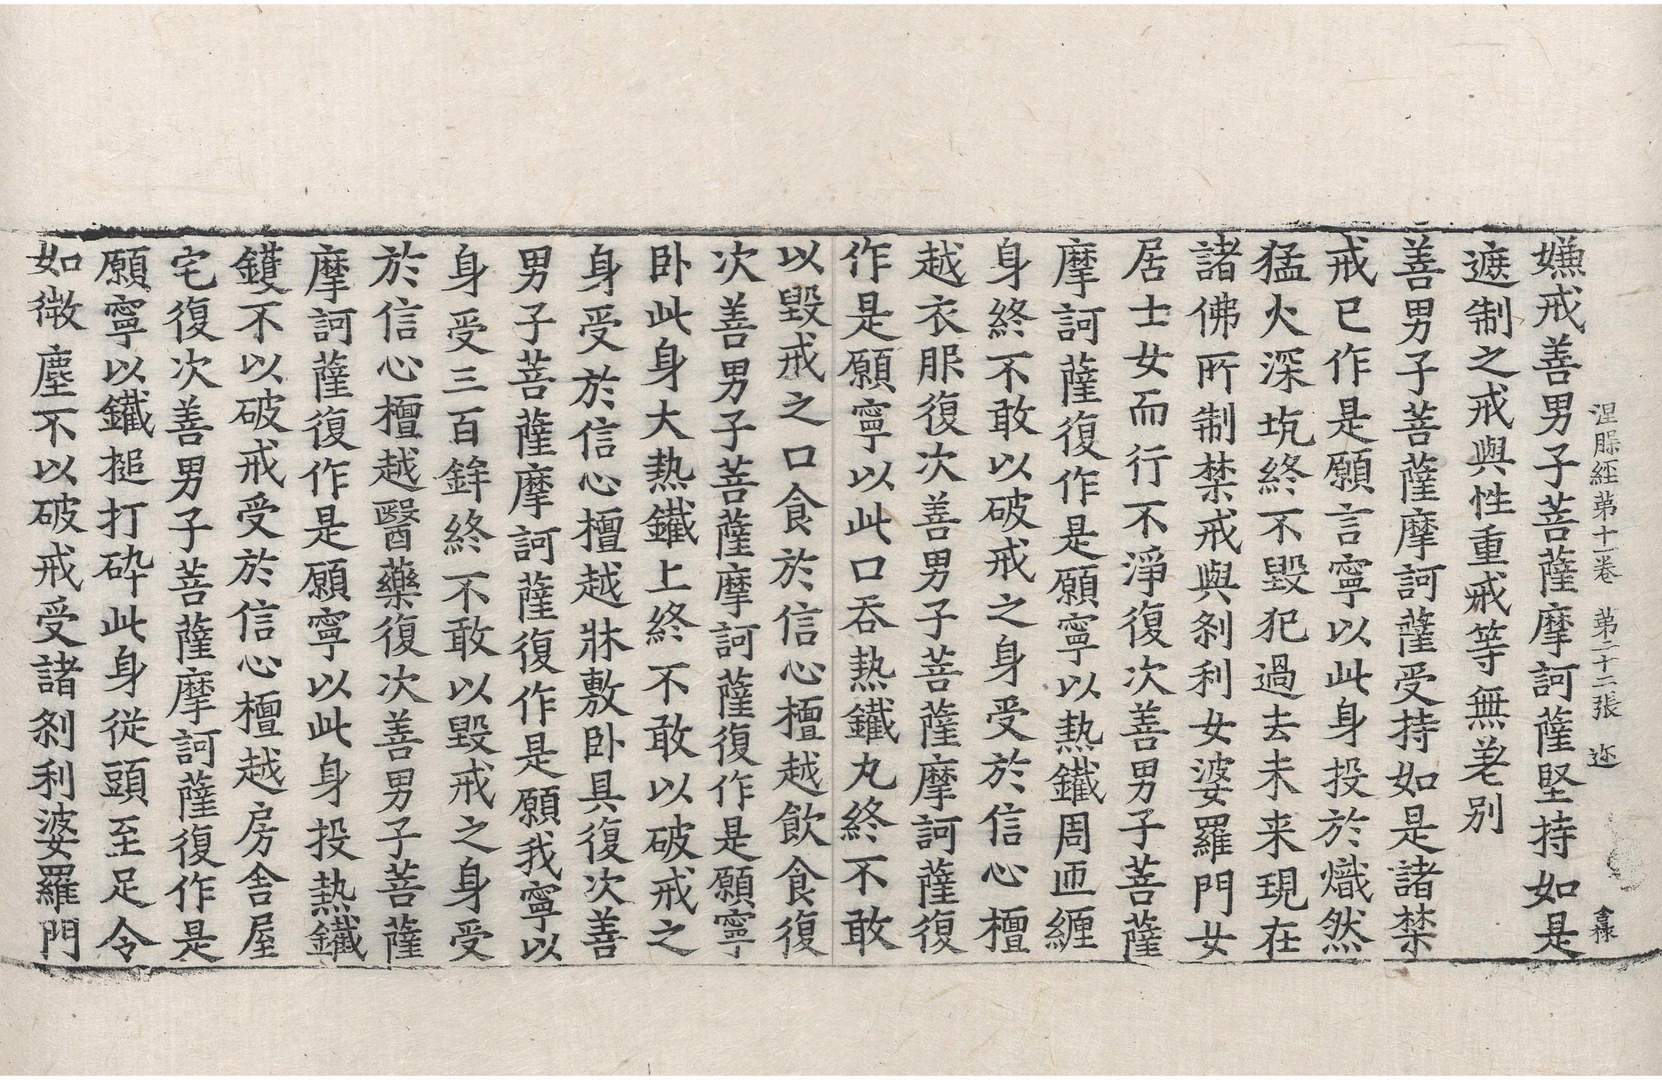 涅脲経第十一卷 第二十二張 迩
嫌戒善男子菩薩摩訶薩堅持如是
遮制之戒與性重戒等無差别
善男子菩薩摩訶薩受持如是諸禁
戒已作是願言寧以此身投於熾然
猛火深坑終不毀犯過去未来現在
諸佛所制禁戒與剎利女婆羅門女
居士女而行不淨復次善男子菩薩
摩訶薩復作是願寧以熱鐵周帀纒
身終不敢以破戒之身受於信心檀
越衣服復次善男子菩薩摩訶薩復
作是願寧以此口吞熱鐵丸終不敢
以毀戒之口食於信心檀越飲食復
次善男子菩薩摩訶薩復作是願寧
卧此身大熱鐵上終不敢以破戒之
身受於信心檀越牀敷卧具復次善
男子菩薩摩訶薩復作是願我寧以
身受三百鉾終不敢以毀戒之身受
於信心檀越醫藥復次善男子菩薩
摩訶薩復作是願寧以此身投熱鐵
鑊不以破戒受於信心檀越房舍屋
宅復次善男子菩薩摩訶薩復作是
願寧以鐵搥打碎此身從頭至足令
如微塵不以破戒受諸剎利婆羅門